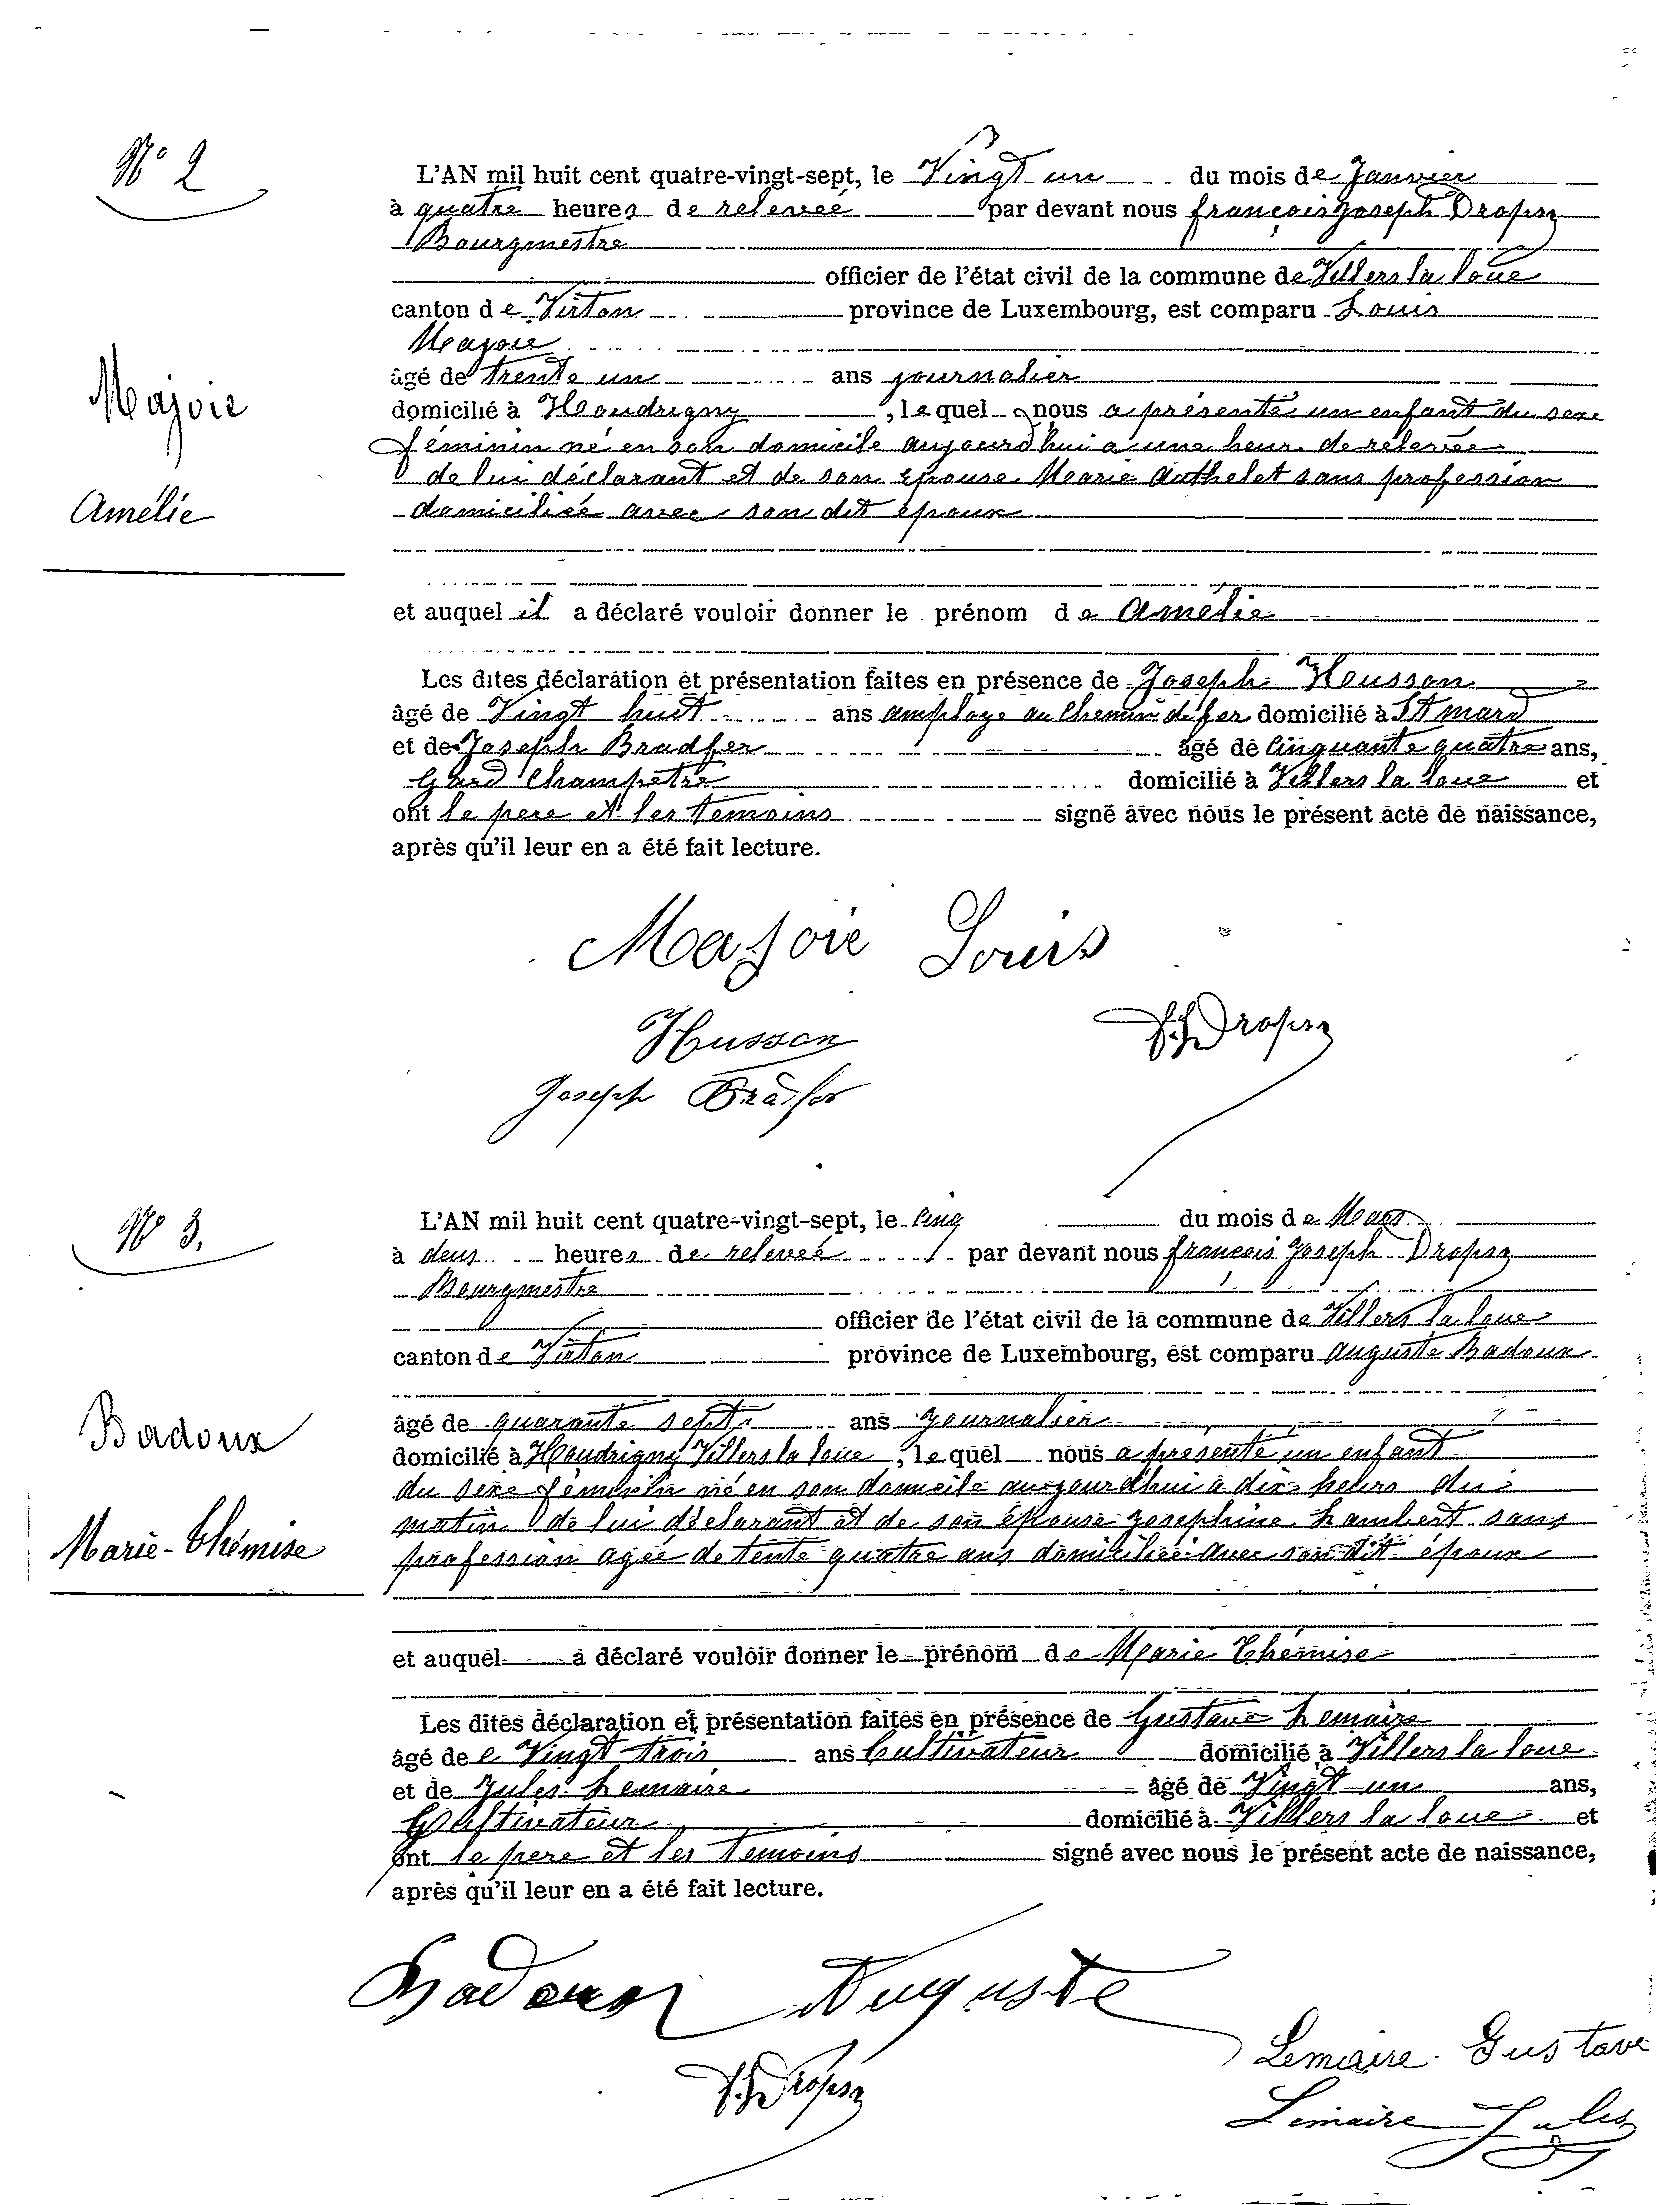 N° 2
L'AN mil huit cent quatre-vingt-sept, le Vingt un du mois de Janvier
à quatre heures de relevée par devant nous françois Joseph Dropsy
Bourgmestre
officier de l'état civil de la commune de Villers la loue
canton de Virton province de Luxembourg, est comparu Louis
Majoie
Majoie
âgé de trente un ans journalier
domicilié à Houdrigny, lequel nous a présenté un enfant du sexe
féminin né en son domicile aujourd'hui a une heur de relevée
de lui déclarant et de son épouse Marie Authelet sans profession
Amélie
domiciliée avec son dit époux
et auquel il a déclaré vouloir donner le prénom de Amélie
Les dites déclaration et présentation faites en présence de Joseph Housson
âgé de Vingt huit ans employe au Chemin de fer domicilié à St mard
et de Joseph Bradfer âgé de Cinquante quatre ans,
Gard Champetre domicilié à Villers la loue et
ont le pere et les temoins signé avec nous le présent acte de naissance,
après qu'il leur en a été fait lecture.
Majoie Louis
Husson
F. J. Dropsy
Joseph Bradfer
N° 3.
L'AN mil huit cent quatre-vingt-sept, le Cinq du mois de Mars
à deux heures de relevée par devant nous françois Joseph Dropsy
Bourgmestre
officier de l'état civil de la commune de Villers la loue
canton de Virton province de Luxembourg, est comparu Auguste Badoux
Badoux
âgé de quarante sept ans journalier
domicilié à Houdrigny Villers la loue, lequel nous a presenté un enfant
du sexe féminin né en son domicile aujourd'hui a dix heurs du
Marie-Thémise
matin de lui déclarant et de son épouse josephine Lambert sans
profession agée de tente quatre ans domiciliée avec son dit époux
et auquel a déclaré vouloir donner le prénom de Marie Thémise
Les dites déclaration et présentation faites en présence de Gustave Lemaire
âgé de e Vingt trois ans Cultivateur domicilié à Villers la loue
et de Jules Lemaire âgé de Vingt un ans,
Cultivateur domicilié à Villers la loue et
ont le pere et les temoins signé avec nous le présent acte de naissance,
après qu'il leur en a été fait lecture.
Badoux Auguste
Lemaire Gustave
F. J. Dropsy
Lemaire Jules